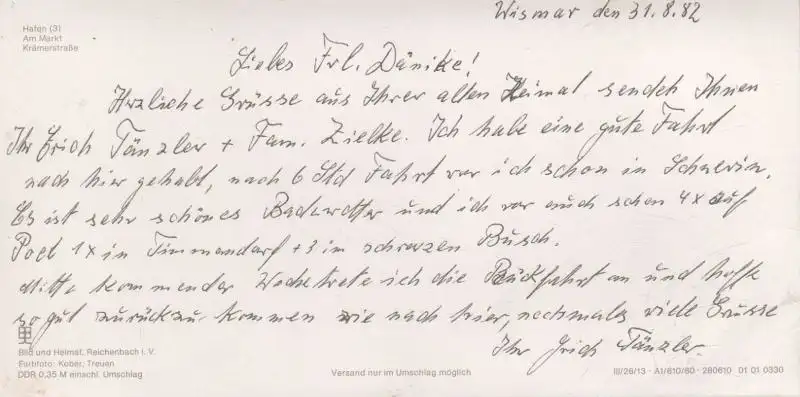 Wismar den 31.8.82
Hafen (3)
Am Markt
Krämerstraße
Liebes Frl. Dänike!
Herzliche Grüsse aus Ihrer alten Heimat sendet Ihnen
Ihr Erich Tänzler + Fam. Zielke. Ich habe eine gute Fahrt
nach hier gehabt, nach 6 Std Fahrt war ich schon in Schwerin.
Es ist sehr schönes Badewetter und ich war auch schon 4x auf
Poel 1x in Timmendorf + 3 im schwarzen Busch.
Mitte kommender Woche trete ich die Rückfahrt an und hoffe
so gut zurückzu- kommen wie nach hier, nochmals viele Grüsse
Ihr Erich Tänzler.
Bild und Heimat, Reichenbach i. V.
Farbfoto: Kober, Treuen
DDR 0,35 M einschl. Umschlag
Versand nur im Umschlag möglich
III/26/13 · A1/610/80 · 280610 01 01 0330